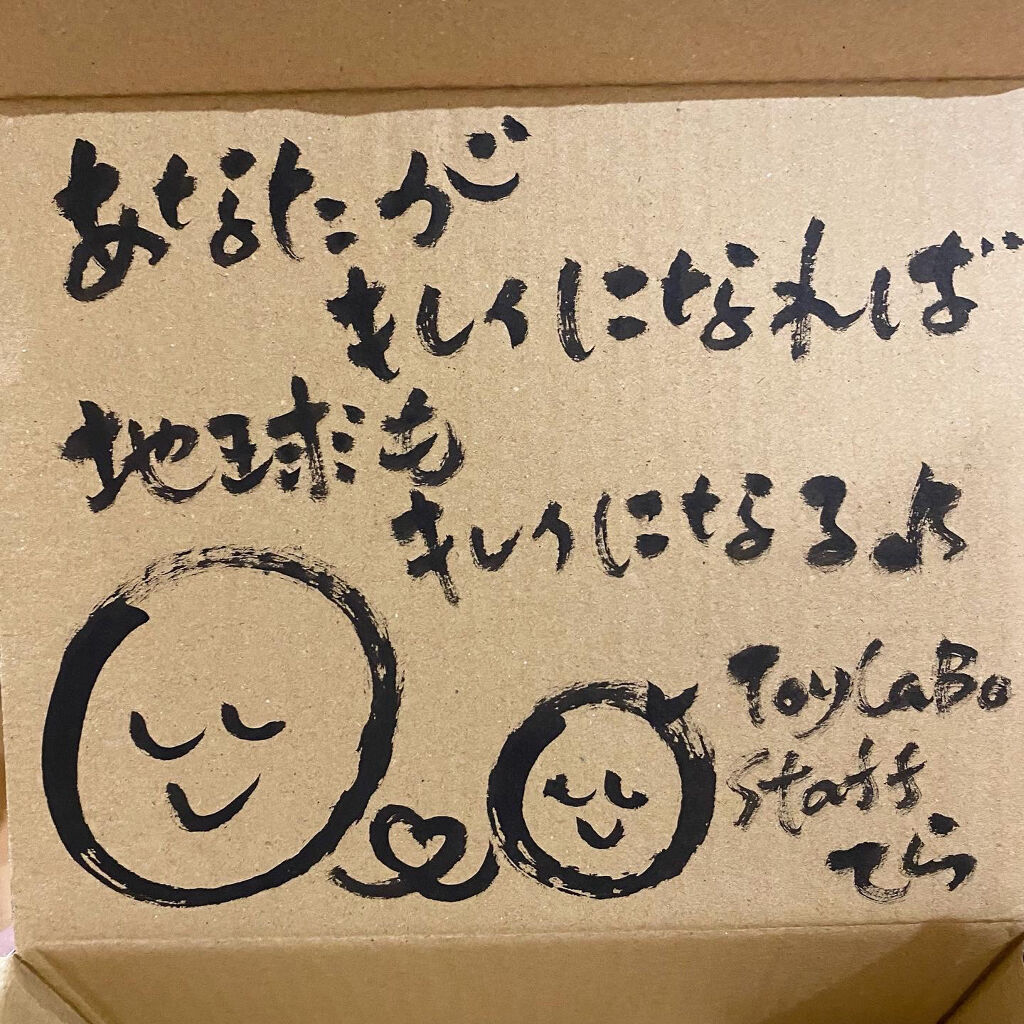 あなたが
キレイになれば
地球も
キレイになるよ
ToyLaBo
Staff
てら